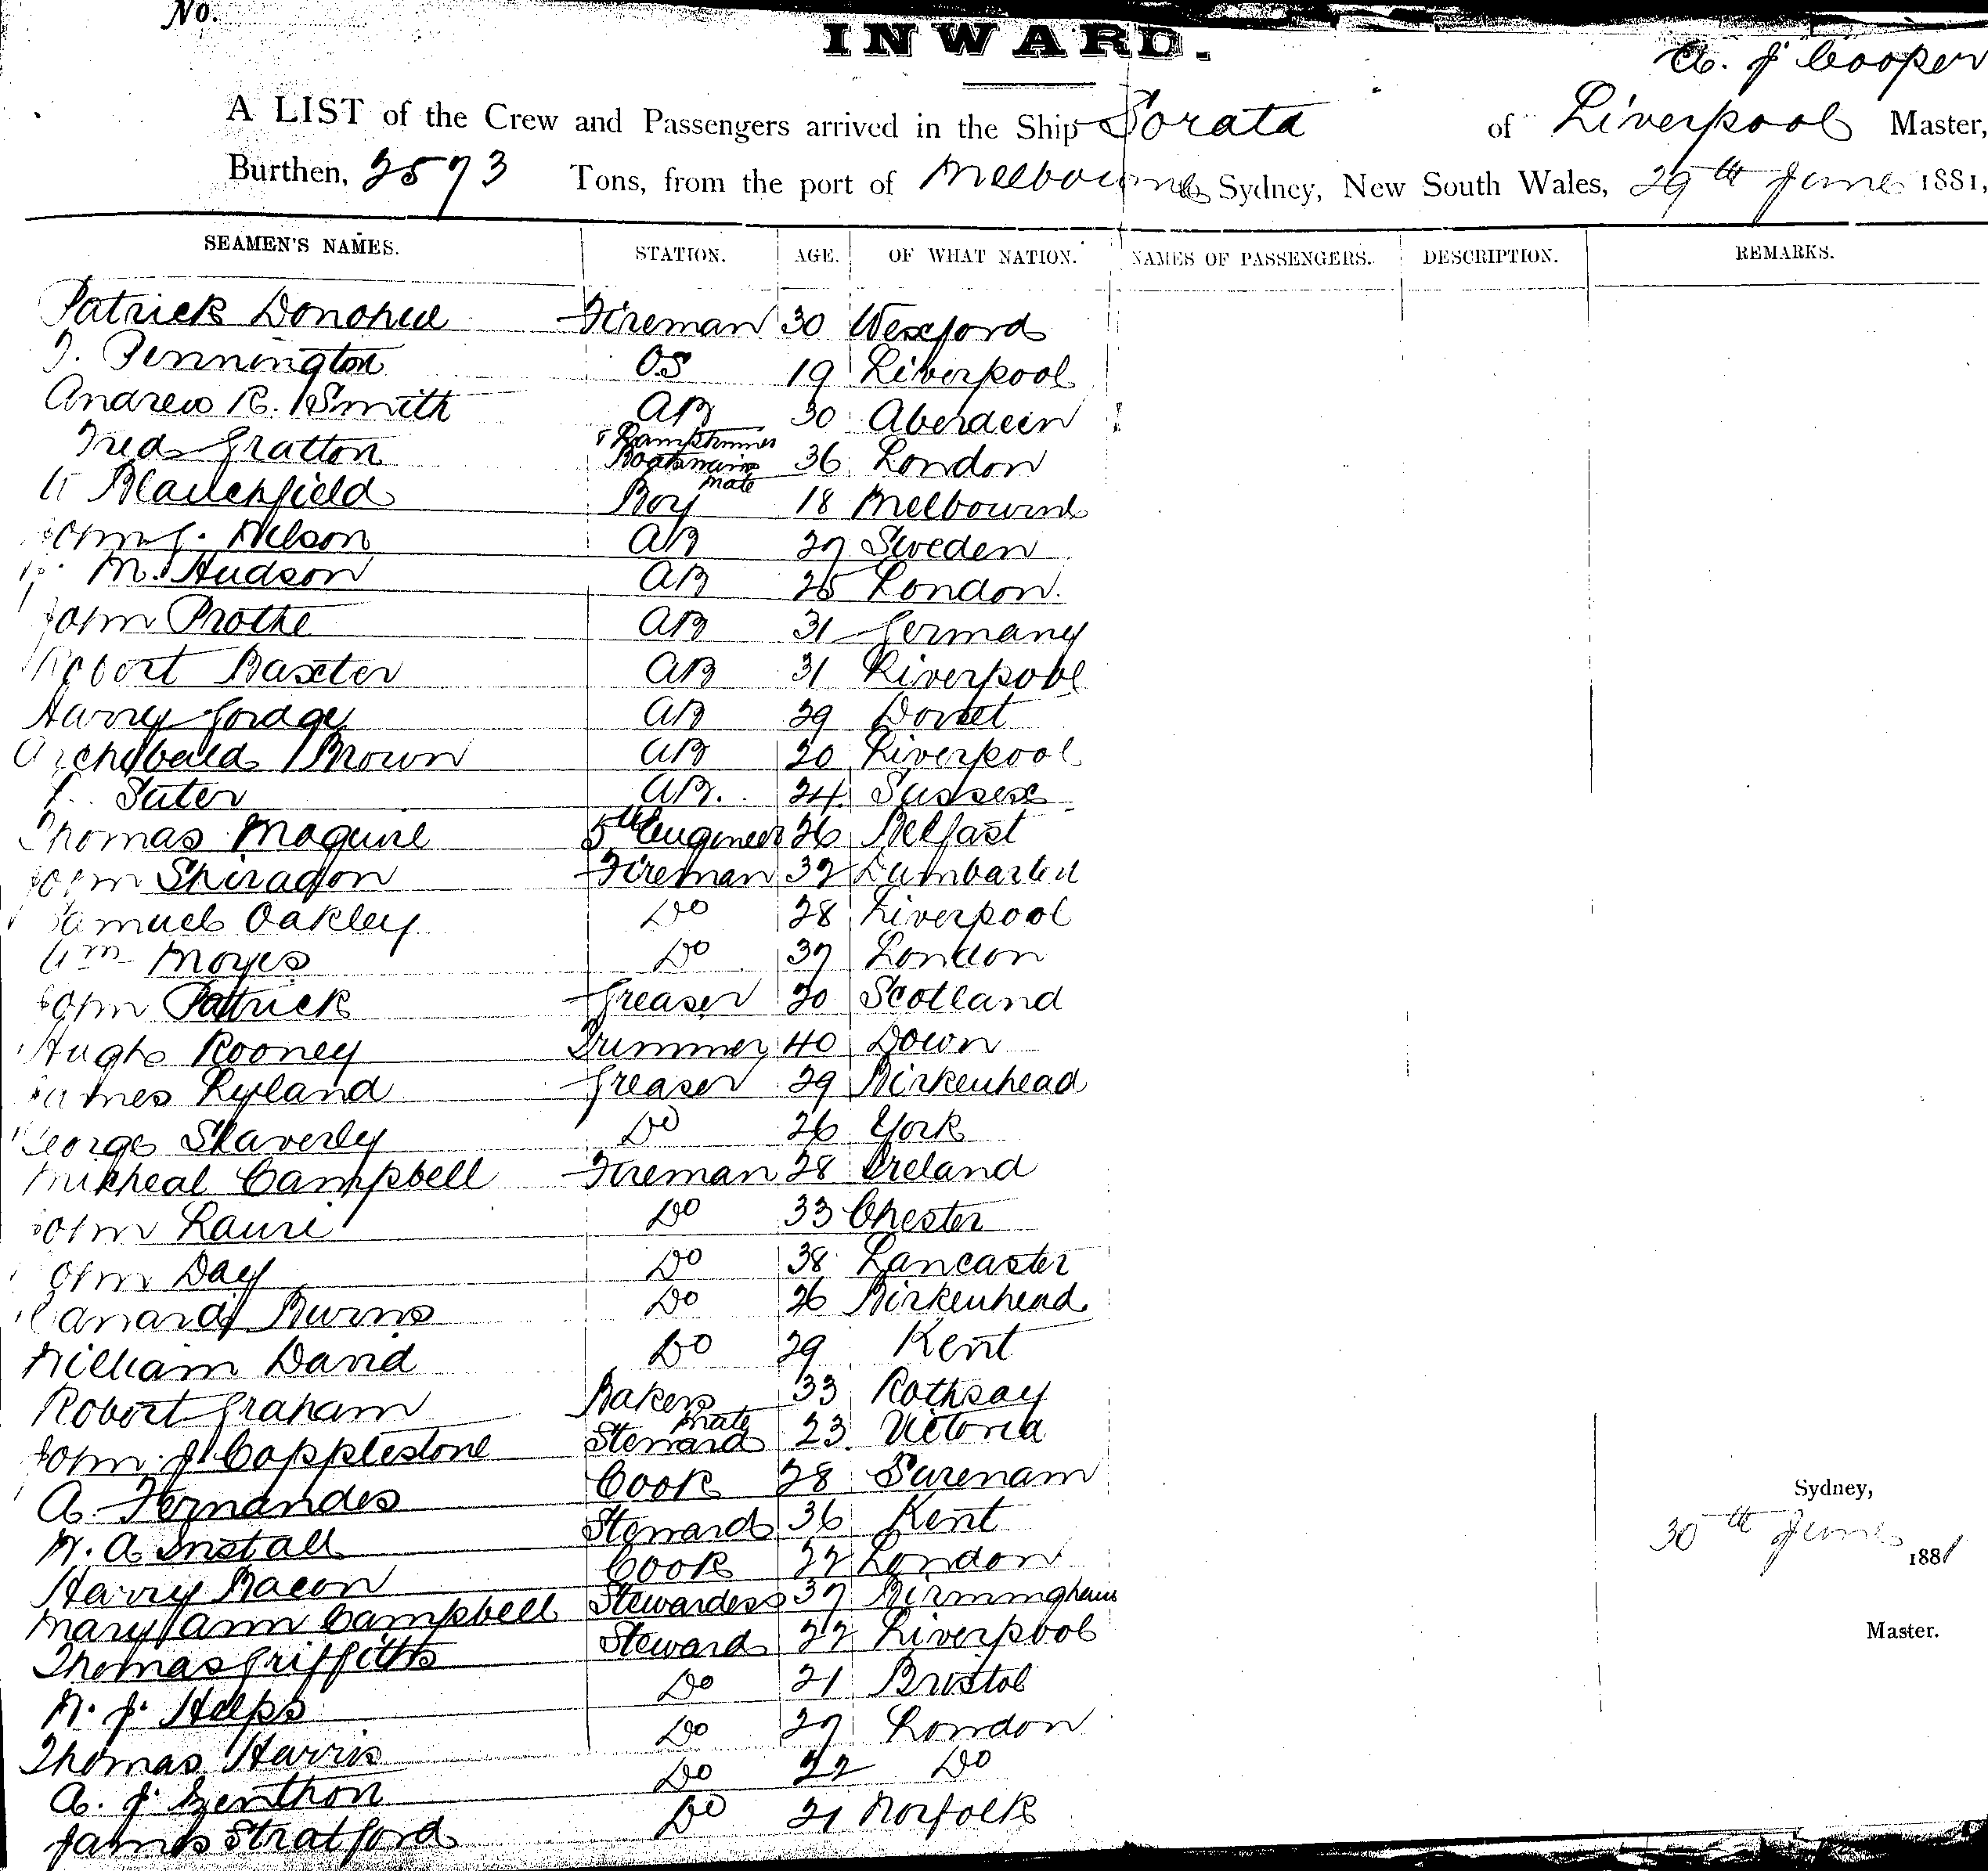 No.
INWARD.
A. J Cooper
A LIST of the Crew and Passengers arrived in the Ship Sorata of Liverpool Master,
Burthen, 2573 Tons, from the port of Melbourne Sydney, New South Wales, 29th June 1881,
SEAMEN'S NAMES. STATION. AGE. OF WHAT NATION. NAMES OF PASSENGERS. DESCRIPTION. REMARKS.
Patrick Donohue Fireman 30 Wexford
J. Pennington OS 19 Liverpool
Andrew R. Smith AB 30 Aberdeen
Fred Gratton Lamptrimmer Boatswains mate 36 London
Blanchfield Boy 18 Melbourne
John J. Nelson AB 27 Sweden
M. Hudson AB 25 London.
John Prothe AB 31 Germany
Robert Baxter AB 31 Liverpool
Harry Gordge AB 29 Dorset
Archibald Brown AB 20 Liverpool
Suter AB. 24 Sussex
Thomas Maguire 5th Engineer 26 Belfast
John Shiragon Fireman 32 Dumbarton
Samuel Oakley Do 28 Liverpool
Wm Moyes Do 37 London
John Patrick Greaser 20 Scotland
Hugh Rooney Trimmer 40 Down
James Ryland Greaser 29 Birkenhead
George Slaverly Do 26 York
Micheal Campbell Fireman 28 Ireland
John Lauri Do 33 Chester
John Day Do 38 Lancaster
Burns Do 26 Birkenhead
William David Do 29 Kent
Robert Graham Bakers mate 33 Rothsay
John J. Copplestone Steward 23. Victoria
A. Fernandes Cook 28 Surenam
W. A Install Steward 36 Kent
Harry Bacon Cook 22 London
Mary Ann Campbell Stewardess 37 Birmingham
Thomas Griffiths Steward 22 Liverpool
W. J. Helps Do 21 Bristol
Thomas Harris Do 27 London
A. J. Zenthon Do 22 Do
James Stratford Do 21 Norfolk
Sydney,
30th June 1881
Master.